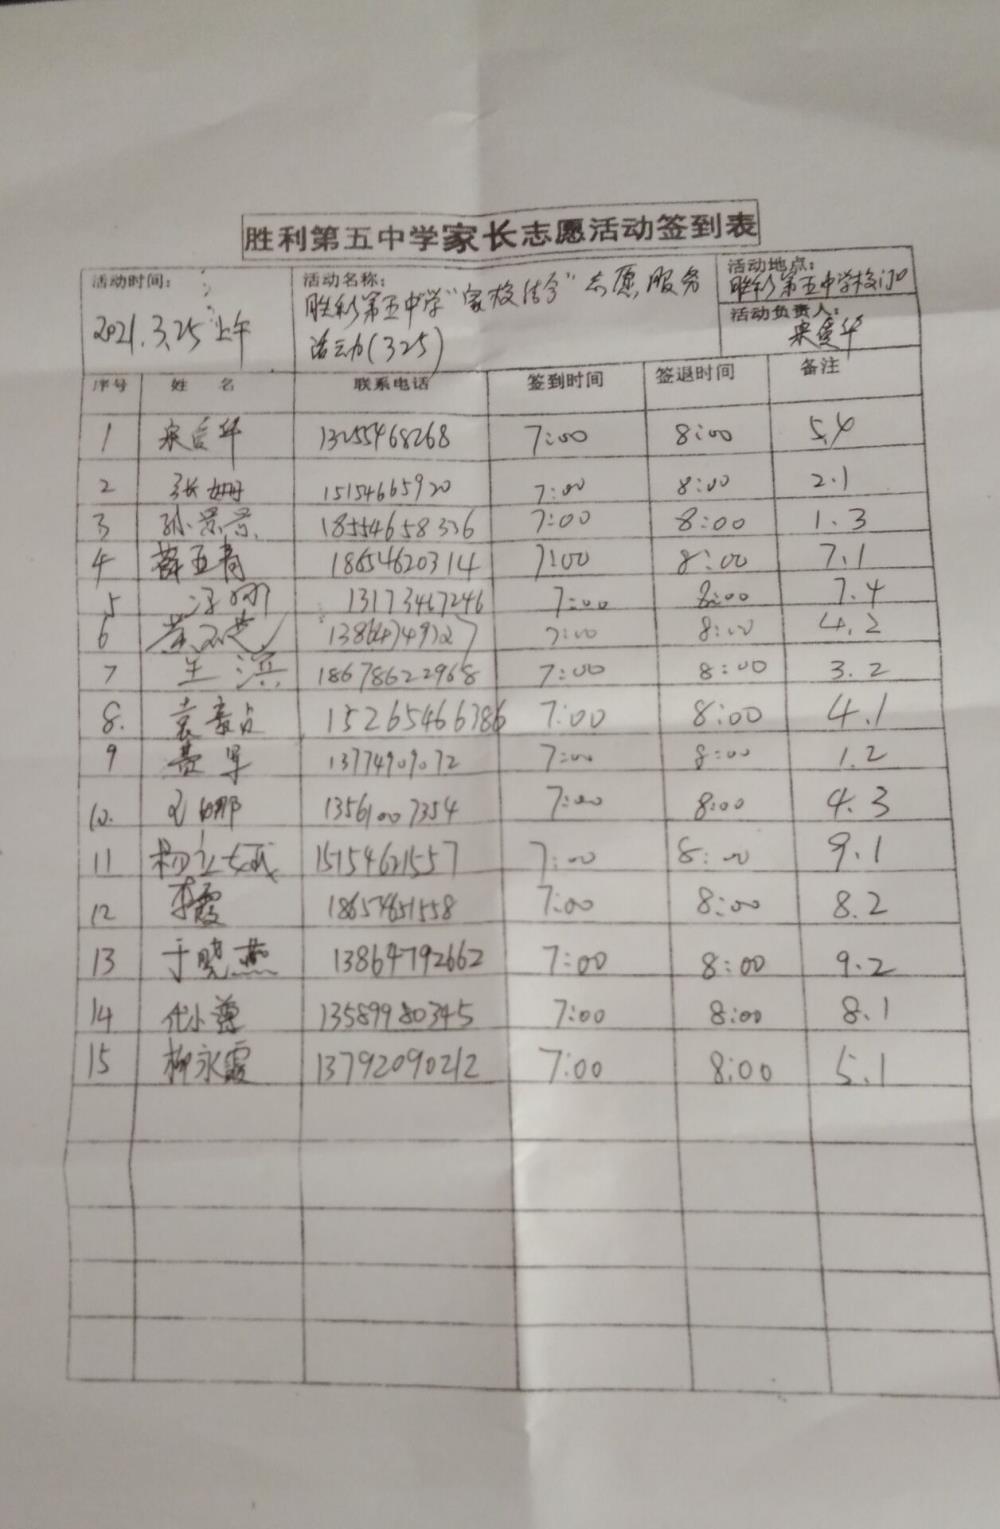 胜利第五中学家长志愿活动签到表
活动时间：
2021.3.25上午
活动名称：
胜利第五中学“家校结合”志愿服务
活动(325)
活动地点：
胜利第五中学校门口
活动负责人：
序号 姓 名 联系电话 签到时间 签退时间 备注
1 13255468268 7:00 8:00 5.4
2 张姗 15154665920 7:00 8:00 2.1
3 孙景景 18554658336 7:00 8:00 1.3
4 薛玉青 18654620314 7:00 8:00 7.1
5 13173467246 7:00 8:00 7.4
6 7:00 8:00 4.2
7 王滨 18678622968 7:00 8:00 3.2
8. 15265466786 7:00 8:00 4.1
9 13774909072 7:00 8:00 1.2
10. 13561007354 7:00 8:00 4.3
11 15154621557 7:00 8:00 9.1
12 李霞 18654651558 7:00 8:00 8.2
13 于晓燕 13864792662 7:00 8:00 9.2
14 13589980345 7:00 8:00 8.1
15 柳永霞 13792090212 7:00 8:00 5.1